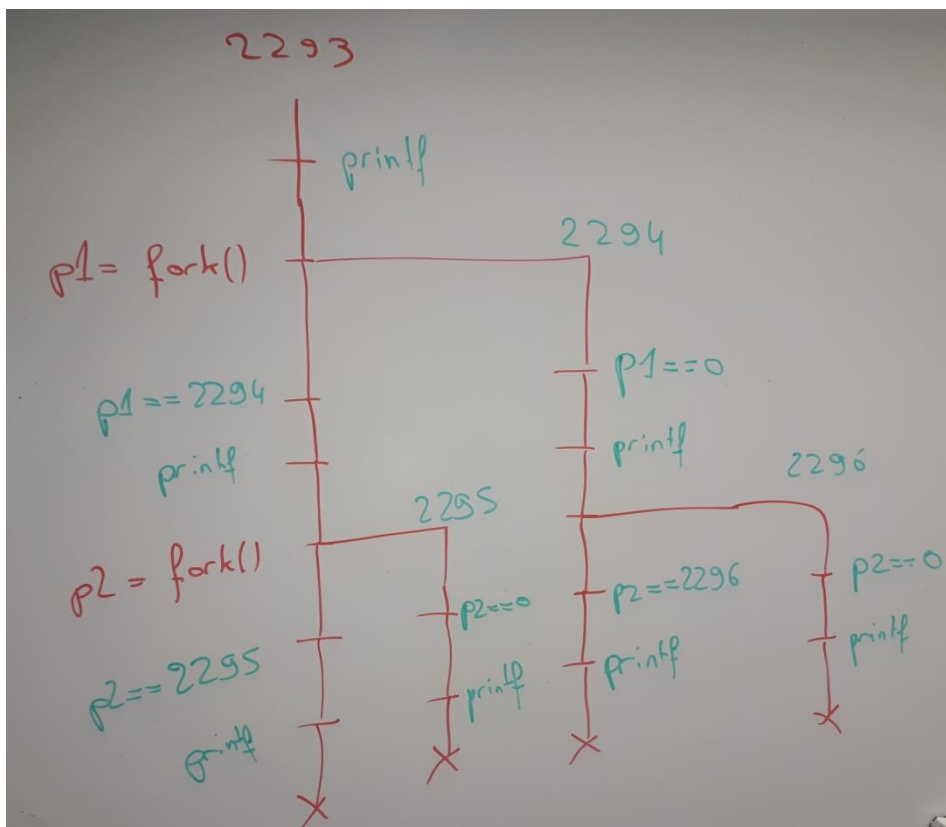 2293
printf
p1= fork()
2294
p1==0
p1==2294
printf
printf
2296
2295
p2 = fork()
p2==0
p2==2296
p2==0
printf
p2==2295
printf
printf
printf